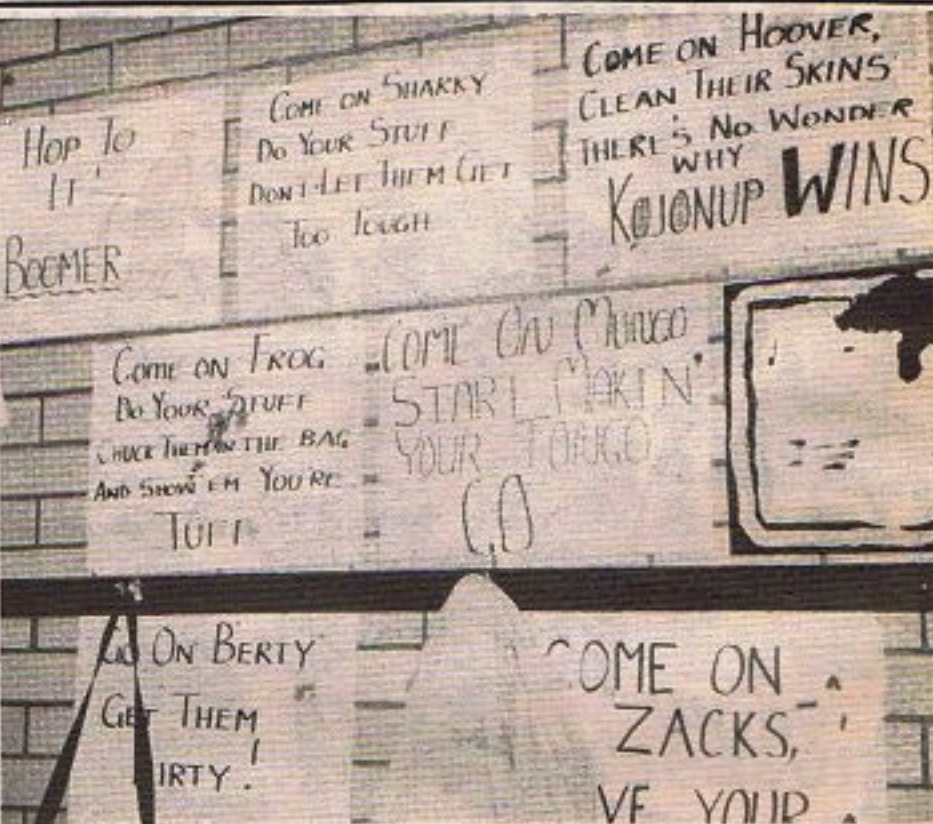 HOP TO
IT!
BOOMER
COME ON SHARKY
DO YOUR STUFF
DON'T LET THEM GET
TOO TOUGH
COME ON HOOVER,
CLEAN THEIR SKINS
THERE'S NO WONDER
WHY
KOJONUP WINS
COME ON FROG
DO YOUR STUFF
CHUCK THEM IN THE BAG
AND SHOW 'EM YOU'RE
TUFF
COME ON MUNGO
START MAKIN'
YOUR
GO
GO ON BERTY
GET THEM
IRTY!
COME ON
ZACKS,
VE YOUR